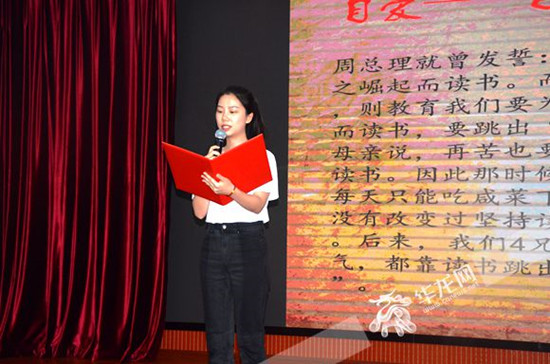 周总理就曾发誓：
之崛起而读书。而
，则教育我们要为
而读书，要跳出
母亲说，再苦也要
读书。因此那时候
每天只能吃咸菜
没有改变过坚持
。后来，我们4兄
气，都靠读书跳出
”。
华龙网